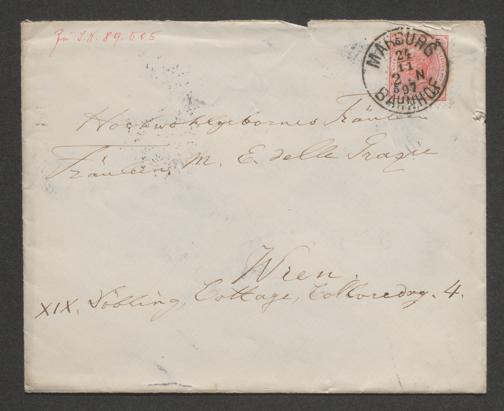 Zu I.N. 89.585
MARBURG
24
11
2.N
97
BAHNHOF
Hochwohlgebornes Fräulein
Fräulein M. E. delle Grazie
Wien.
XIX. Döbling, Cottage, Colloredog. 4.